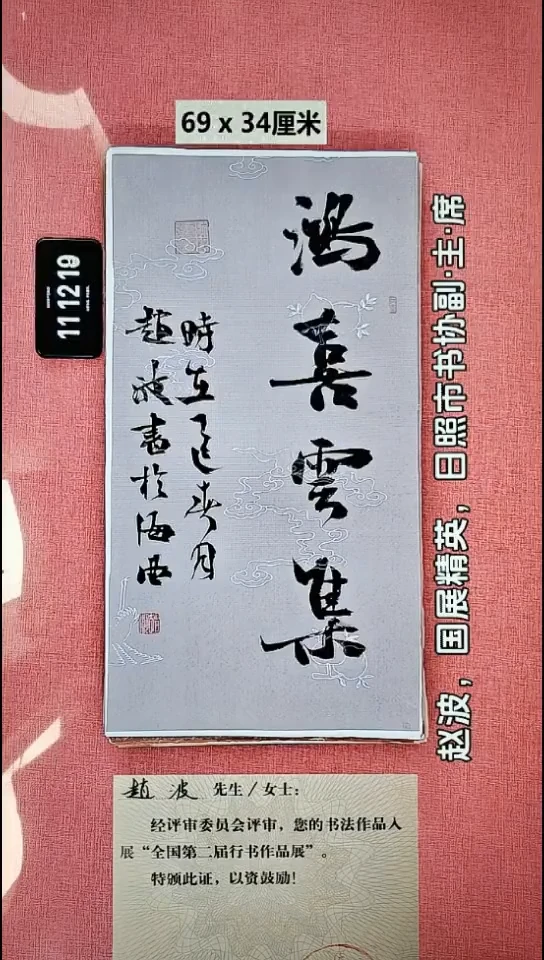 69 x 34厘米
鴻喜雲集
時在乙巳春月
趙波書於海西
11 12 19
赵波，国展精英，日照市书协副·主·席
趙波 先生／女士：
经评审委员会评审，您的书法作品入
展“全国第二届行书作品展”。
特颁此证，以资鼓励！